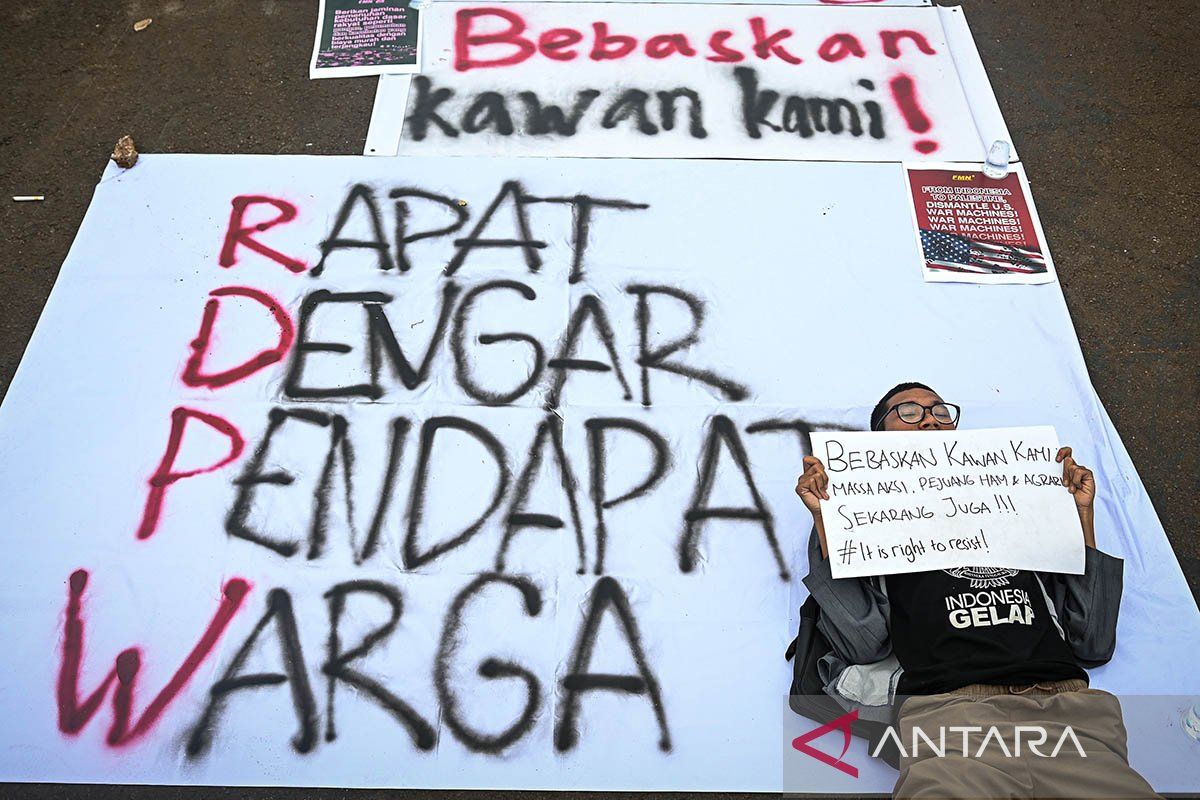 Berikan jaminan
pemenuhan
kebutuhan dasar
rakyat seperti
berkualitas dengan
biaya murah dan
terjangkau!
Bebaskan
kawan kami!
FMN
FROM INDONESIA
TO PALESTINE,
DISMANTLE U.S.
WAR MACHINES!
WAR MACHINES!
WAR MACHINES!
RAPAT
DENGAR
PENDAPAT
WARGA
BEBASKAN KAWAN KAMI
MASSA AKSI, PEJUANG HAM & AGRARI
SEKARANG JUGA!!!
#It is right to resist!
INDONESIA
GELAP
ANTARA